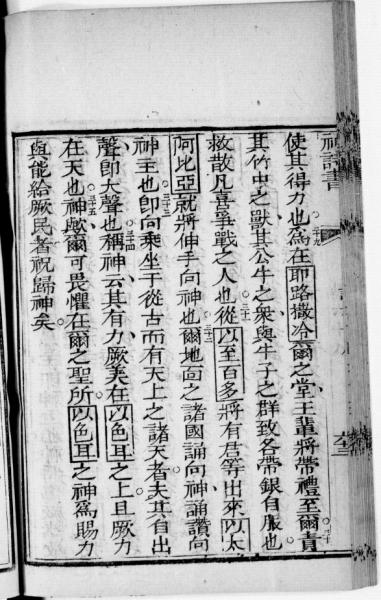 神詩書
使其得力也爲在耶路撒冷爾之堂王輩將帶禮至爾責
其竹中之獸其公牛之衆與牛子之群致各帶銀自服也
救散凡喜爭戰之人也從以至百多將有君等出來以太
阿比亞就將伸手向神也爾地面之諸國誦向神誦讚向
神主也卽向乘坐于從古而有天上之諸天者夫其自出
聲卽大聲也稱神云其有力厥美在以色耳之上且厥力
在天也神歟爾可畏懼在爾之聖所以色耳之神爲賜力
與能給厥民者祝歸神矣